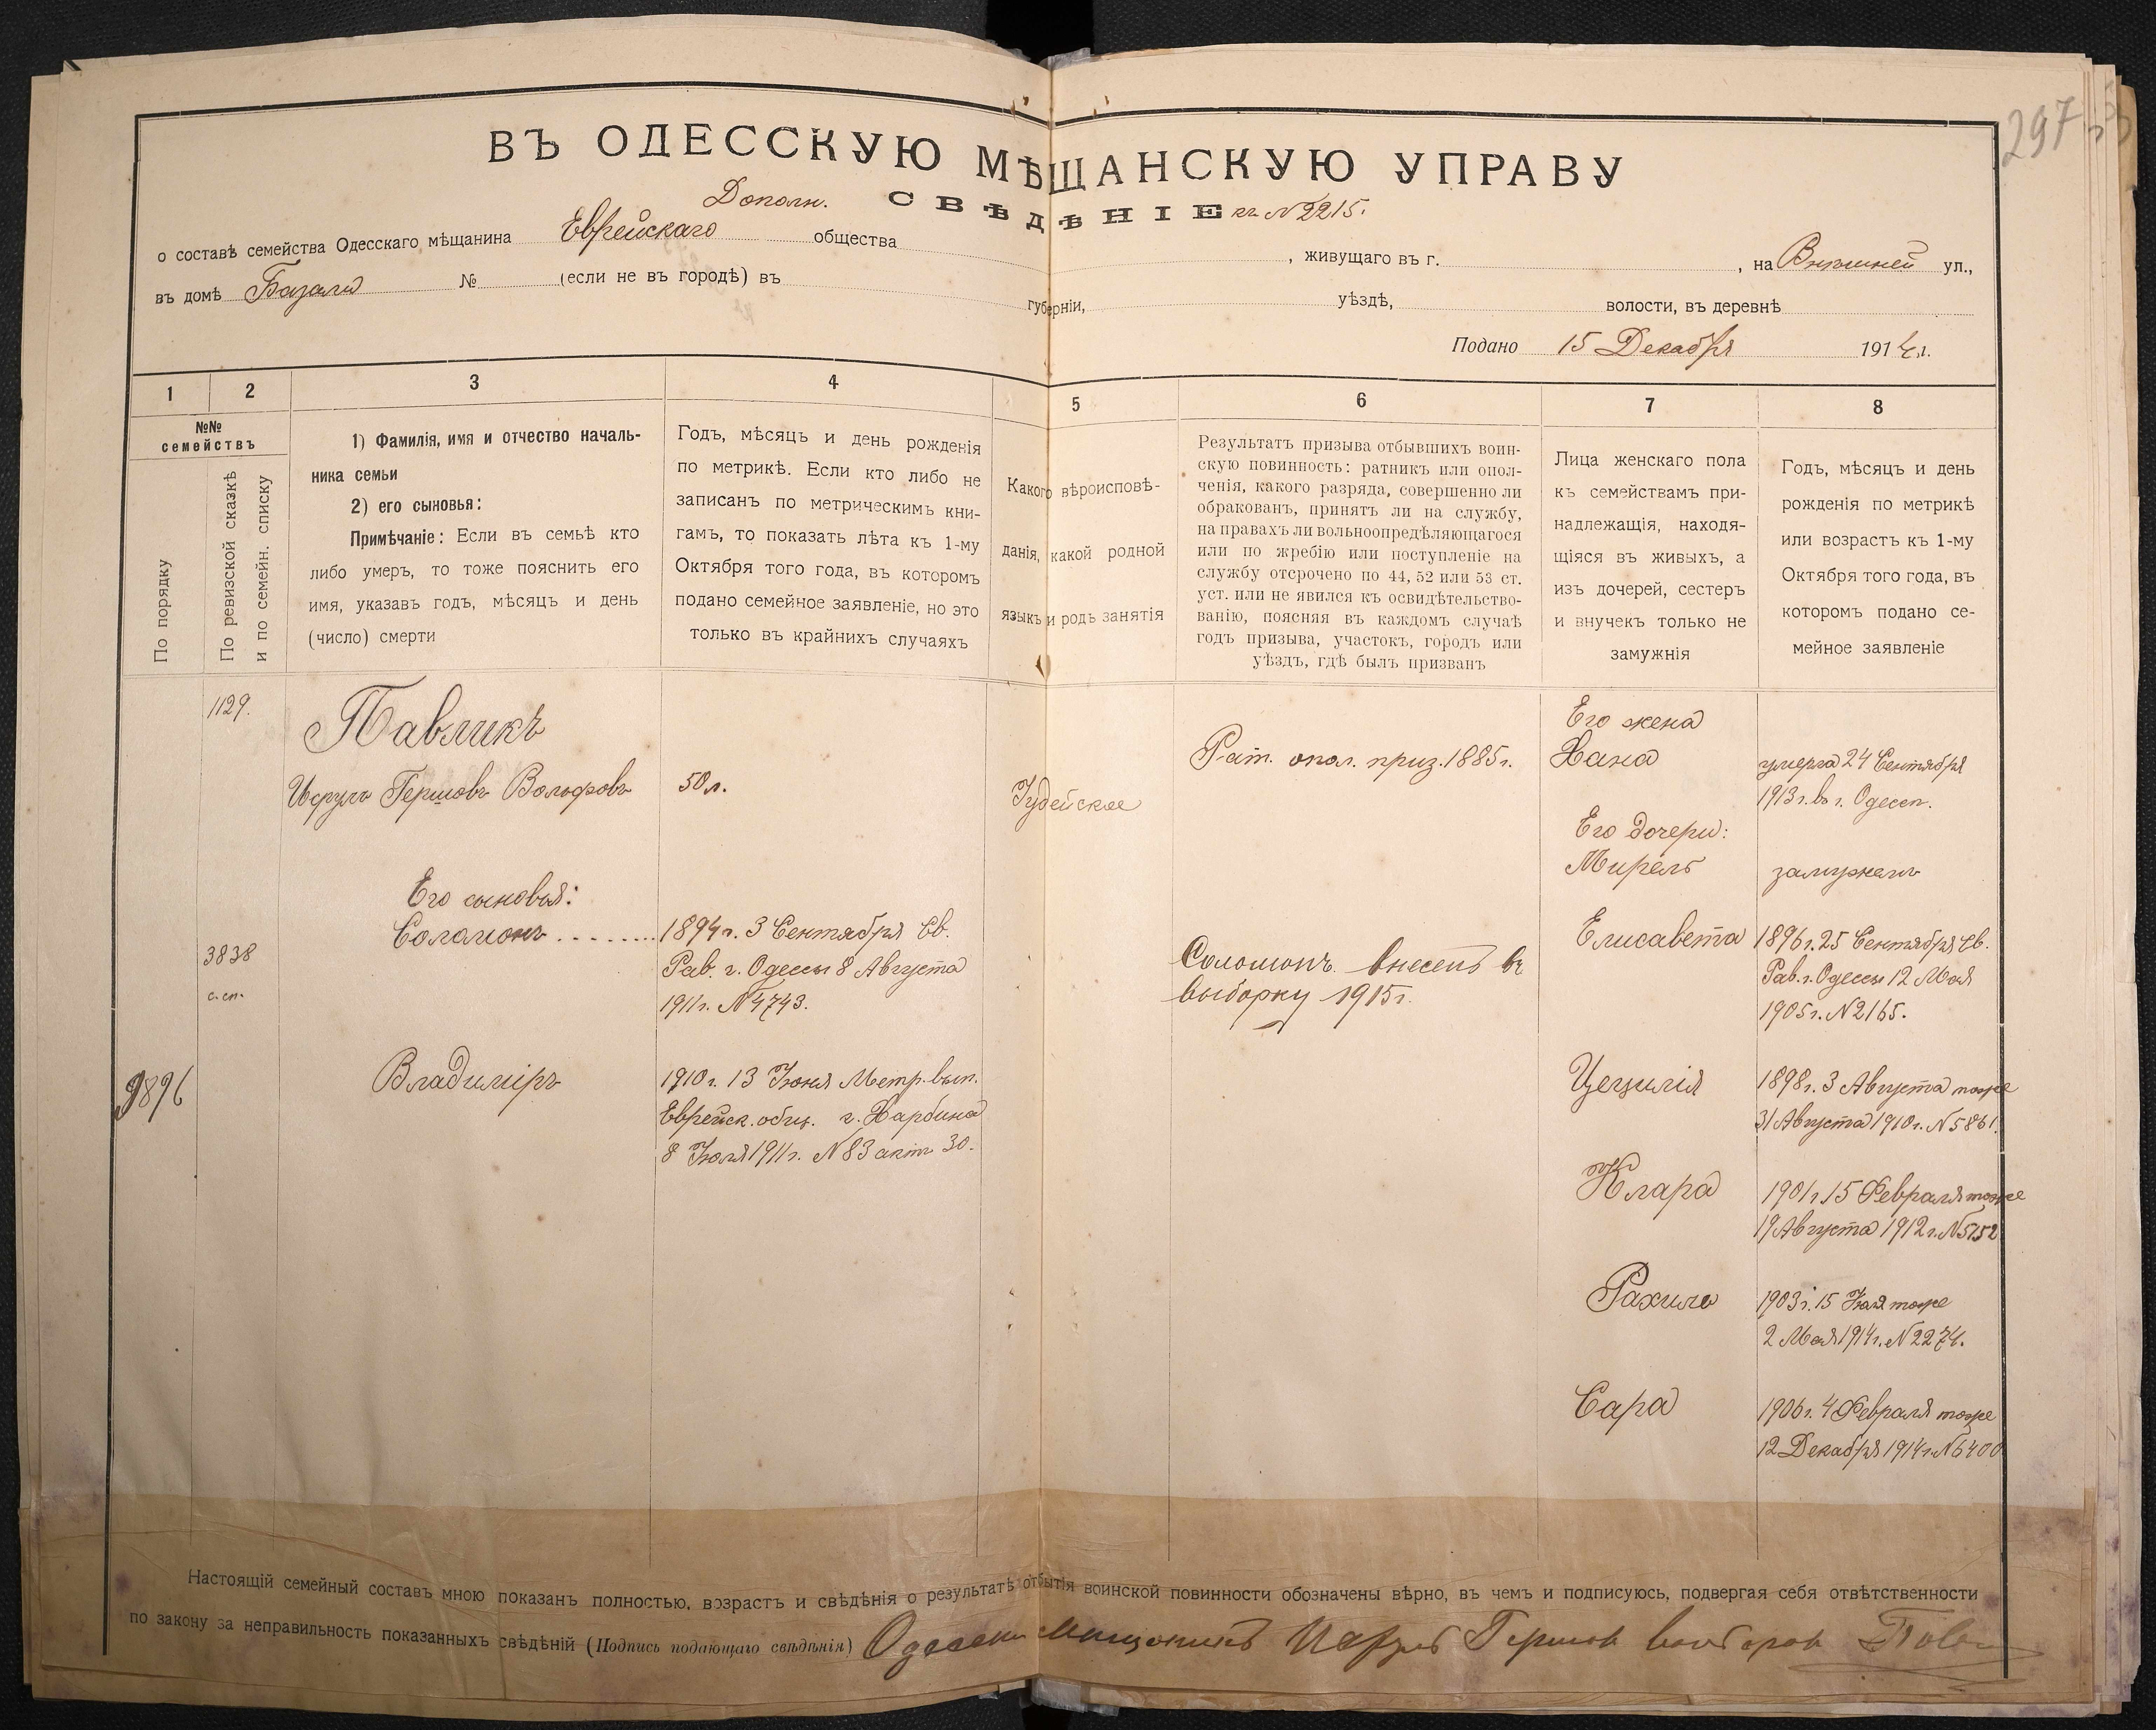 297
ВЪ ОДЕССКУЮ МѢЩАНСКУЮ УПРАВУ
Дополн. СВѢДѢНІЕ къ №2215.
о составѣ семейства Одесскаго мѣщанина Еврейскаго общества , живущаго въ г. , на Внѣшней ул.,
въ домѣ № (если не въ городѣ) въ губерніи, уѣздѣ, волости, въ деревнѣ
Подано 15 Декабря 1914 г.
1 2 3 4 5 6 7 8
№№
семействъ
По порядку
По ревизской сказкѣ
и по семейн. списку
1) Фамилія, имя и отчество началь-
ника семьи
2) его сыновья:
Примѣчаніе: Если въ семьѣ кто
либо умеръ, то тоже пояснить его
имя, указавъ годъ, мѣсяцъ и день
(число) смерти
Годъ, мѣсяцъ и день рожденія
по метрикѣ. Если кто либо не
записанъ по метрическимъ кни-
гамъ, то показать лѣта къ 1-му
Октября того года, въ которомъ
подано семейное заявленіе, но это
только въ крайнихъ случаяхъ
Какого вѣроисповѣ-
данія, какой родной
языкъ и родъ занятія
Результатъ призыва отбывшихъ воин-
скую повинность: ратникъ или опол-
ченія, какого разряда, совершенно ли
обракованъ, принятъ ли на службу,
на правахъ ли вольноопредѣляющагося
или по жребію или поступленіе на
службу отсрочено по 44, 52 или 53 ст.
уст. или не явился къ освидѣтельство-
ванію, поясняя въ каждомъ случаѣ
годъ призыва, участокъ, городъ или
уѣздъ, гдѣ былъ призванъ
Лица женскаго пола
къ семействамъ при-
надлежащія, находя-
щіяся въ живыхъ, а
изъ дочерей, сестеръ
и внучекъ только не
замужнія
Годъ, мѣсяцъ и день
рожденія по метрикѣ
или возрастъ къ 1-му
Октября того года, въ
которомъ подано се-
мейное заявленіе
1129.
Павликъ
Исрулъ Гершовъ Вольфовъ
50 л.
Іудейское
Рат. опол. приз. 1885 г.
Его жена
Хана
умерла 24 Сентября
1913 г. въ г. Одессѣ.
Его дочери:
Мирель
замужемъ
Его сыновья:
3838
с. сп.
Соломонъ ........
1894 г. 3 Сентября Св.
Рав. г. Одессы 8 Августа
1911 г. №4743.
Соломонъ внесенъ въ
выборку 1915 г.
Елисавета
1896 г. 25 Сентября Св.
Рав. г. Одессы 12 Мая
1905 г. №2165.
9896
Владиміръ
1910 г. 13 Іюня Метр. вып.
Еврейск. общ. г. Харбина
8 Іюля 1911 г. №83 актъ 30.
Цецилія
1898 г. 3 Августа тоже
31 Августа 1910 г. №5861.
Клара
1901 г. 15 Февраля тоже
19 Августа 1912 г. №5752
Рахиль
1903 г. 15 тоже
2 Мая 1914 г. №2274.
Сара
1906 г. 4 Февраля тоже
12 Декабря 1914 г. №6400
Настоящій семейный составъ мною показанъ полностью, возрастъ и свѣдѣнія о результатѣ отбытія воинской повинности обозначены вѣрно, въ чемъ и подписуюсь, подвергая себя отвѣтственности
по закону за неправильность показанныхъ свѣдѣній (Подпись подающаго свѣдѣнія) Исруль Гершов